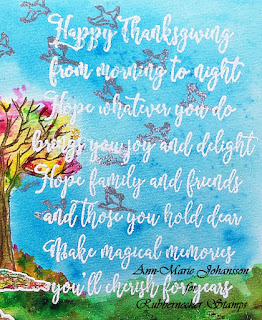 Happy Thanksgiving
from morning to night
Hope whatever you do
brings you joy and delight
Hope family and friends
and those you hold dear
Make magical memories
you'll cherish for years
Ann-Marie Johansson
for
Rubbernecker Stamps